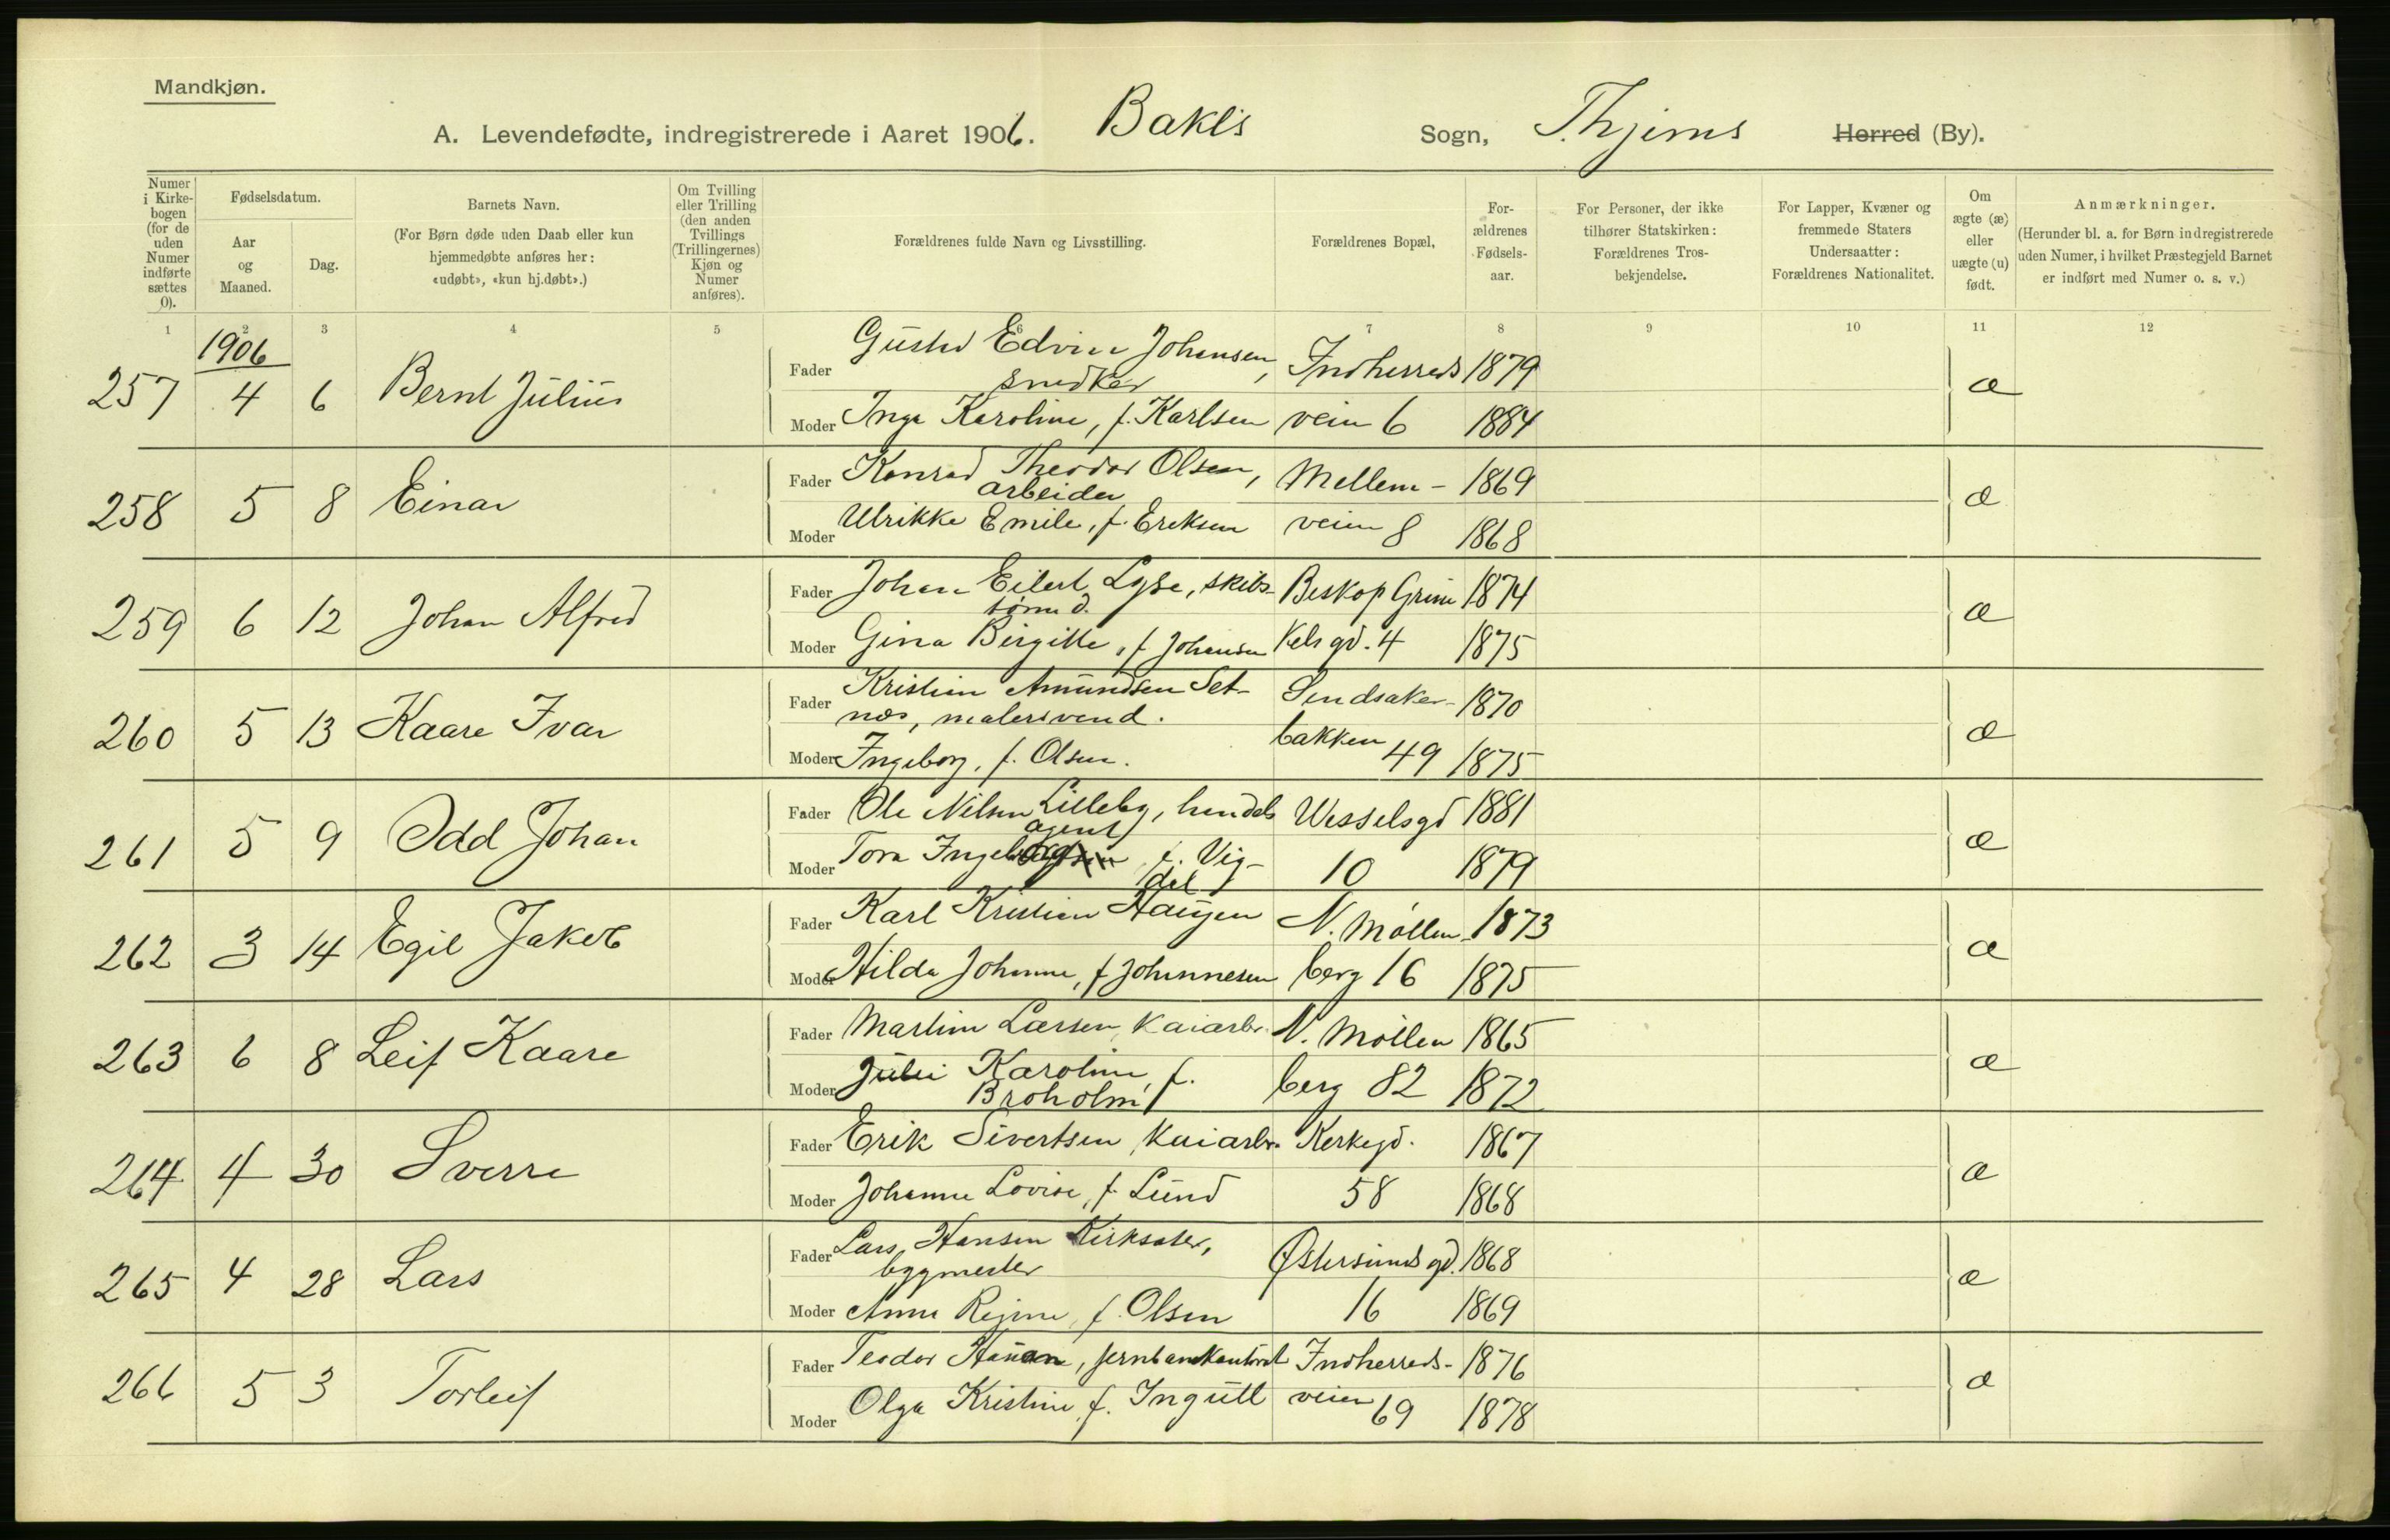 Mandkjøn.
A. Levendefødte, indregistrerede i Aaret 1906. Bakles Sogn, Thjems Herred (By).
Numer i Kirkebogen (for de uden Numer indførte sættes 0).
Fødselsdatum.
Aar og Maaned.
Dag.
Barnets Navn.
(For Børn døde uden Daab eller kun hjemmedøbte anføres her: «udøbt», «kun hj.døbt».)
Om Tvilling eller Trilling (den anden Tvillings (Trillingernes) Kjøn og Numer anføres).
Forældrenes fulde Navn og Livsstilling.
Forældrenes Bopæl,
Forældrenes Fødselsaar.
For Personer, der ikke tilhører Statskirken: Forældrenes Trosbekjendelse.
For Lapper, Kvæner og fremmede Staters Undersaatter: Forældrenes Nationalitet.
Om ægte (æ) eller uægte (u) født.
Anmærkninger.
(Herunder bl. a. for Børn indregistrerede uden Numer, i hvilket Præstegjeld Barnet er indført med Numer o. s. v.)
1 2 3 4 5 6 7 8 9 10 11 12
1906
257 4 6 Bernt Julius Fader Gustav Edvin Johansen, Indherreds 1879 æ
snedker
Moder Inga Karoline, f. Karlsen veien 6 1884
258 5 8 Einar Fader Konrad Theodor Olsen, Mellem- 1869 æ
arbeider
Moder Ulrikke Emile, f. Eriksen veien 8 1868
259 6 12 Johan Alfred Fader Johan Eilert Lyse, skibs- Biskop Grim 1874 æ
tømd.
Moder Gina Birgitte, f Johansen kels gd. 4 1875
260 5 13 Kaare Ivar Fader Kristian Amundsen Set- Sindsaker- 1870 æ
nes, malersvend.
bakken
Moder Ingeborg, f. Olsen. 49 1875
261 5 9 Odd Johan Fader Ole Nilsen Lilleby, handels Wesselsgd 1881 æ
agent
Moder Tora Ingeborg f. Vig- 10 1879
dal
262 3 14 Egil Jakob Fader Karl Kristian Haugen N. Møllen- 1873 æ
Moder Hilda Johanne, f Johannesen berg 16 1875
263 6 8 Leif Kaare Fader Martin Larsen, kaiarb. N. Møllen 1865 æ
Moder Julie Karoline, f. berg 82 1872
Broholm
264 4 30 Sverre Fader Erik Sivertsen, kaiarb. Kirkegd. 1867 æ
Moder Johanne Lovise, f. Lund 58 1868
265 4 28 Lars Fader Lars Hansen Kirksæter, Østersunds gd. 1868 æ
bygmester
Moder Anna Regine, f. Olsen 16 1869
266 5 3 Torleif Fader Teodor Hauan, jernbankontrol Indherreds- 1876 æ
Moder Olga Kristine, f. Ingull veien 69 1878